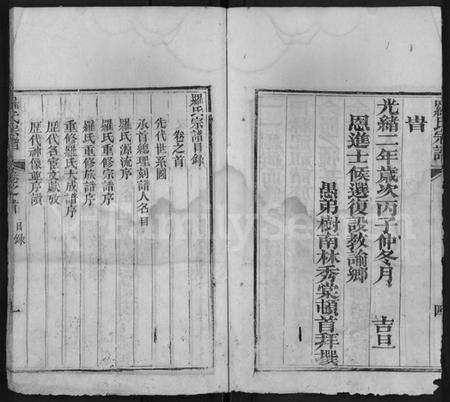 旹
光緒二年歲次丙子仲冬月 吉旦
恩進士候選復設教諭鄉
愚弟樹南林秀棠頓首拜撰
羅氏宗譜目錄
卷之首
先代世系圖
承首總理刻譜人名目
羅氏源流序
羅氏重修宗譜序
羅氏重修族譜序
重修羅氏大成譜序
歷代名宦文獻攷
歷代神像要序讚
目錄